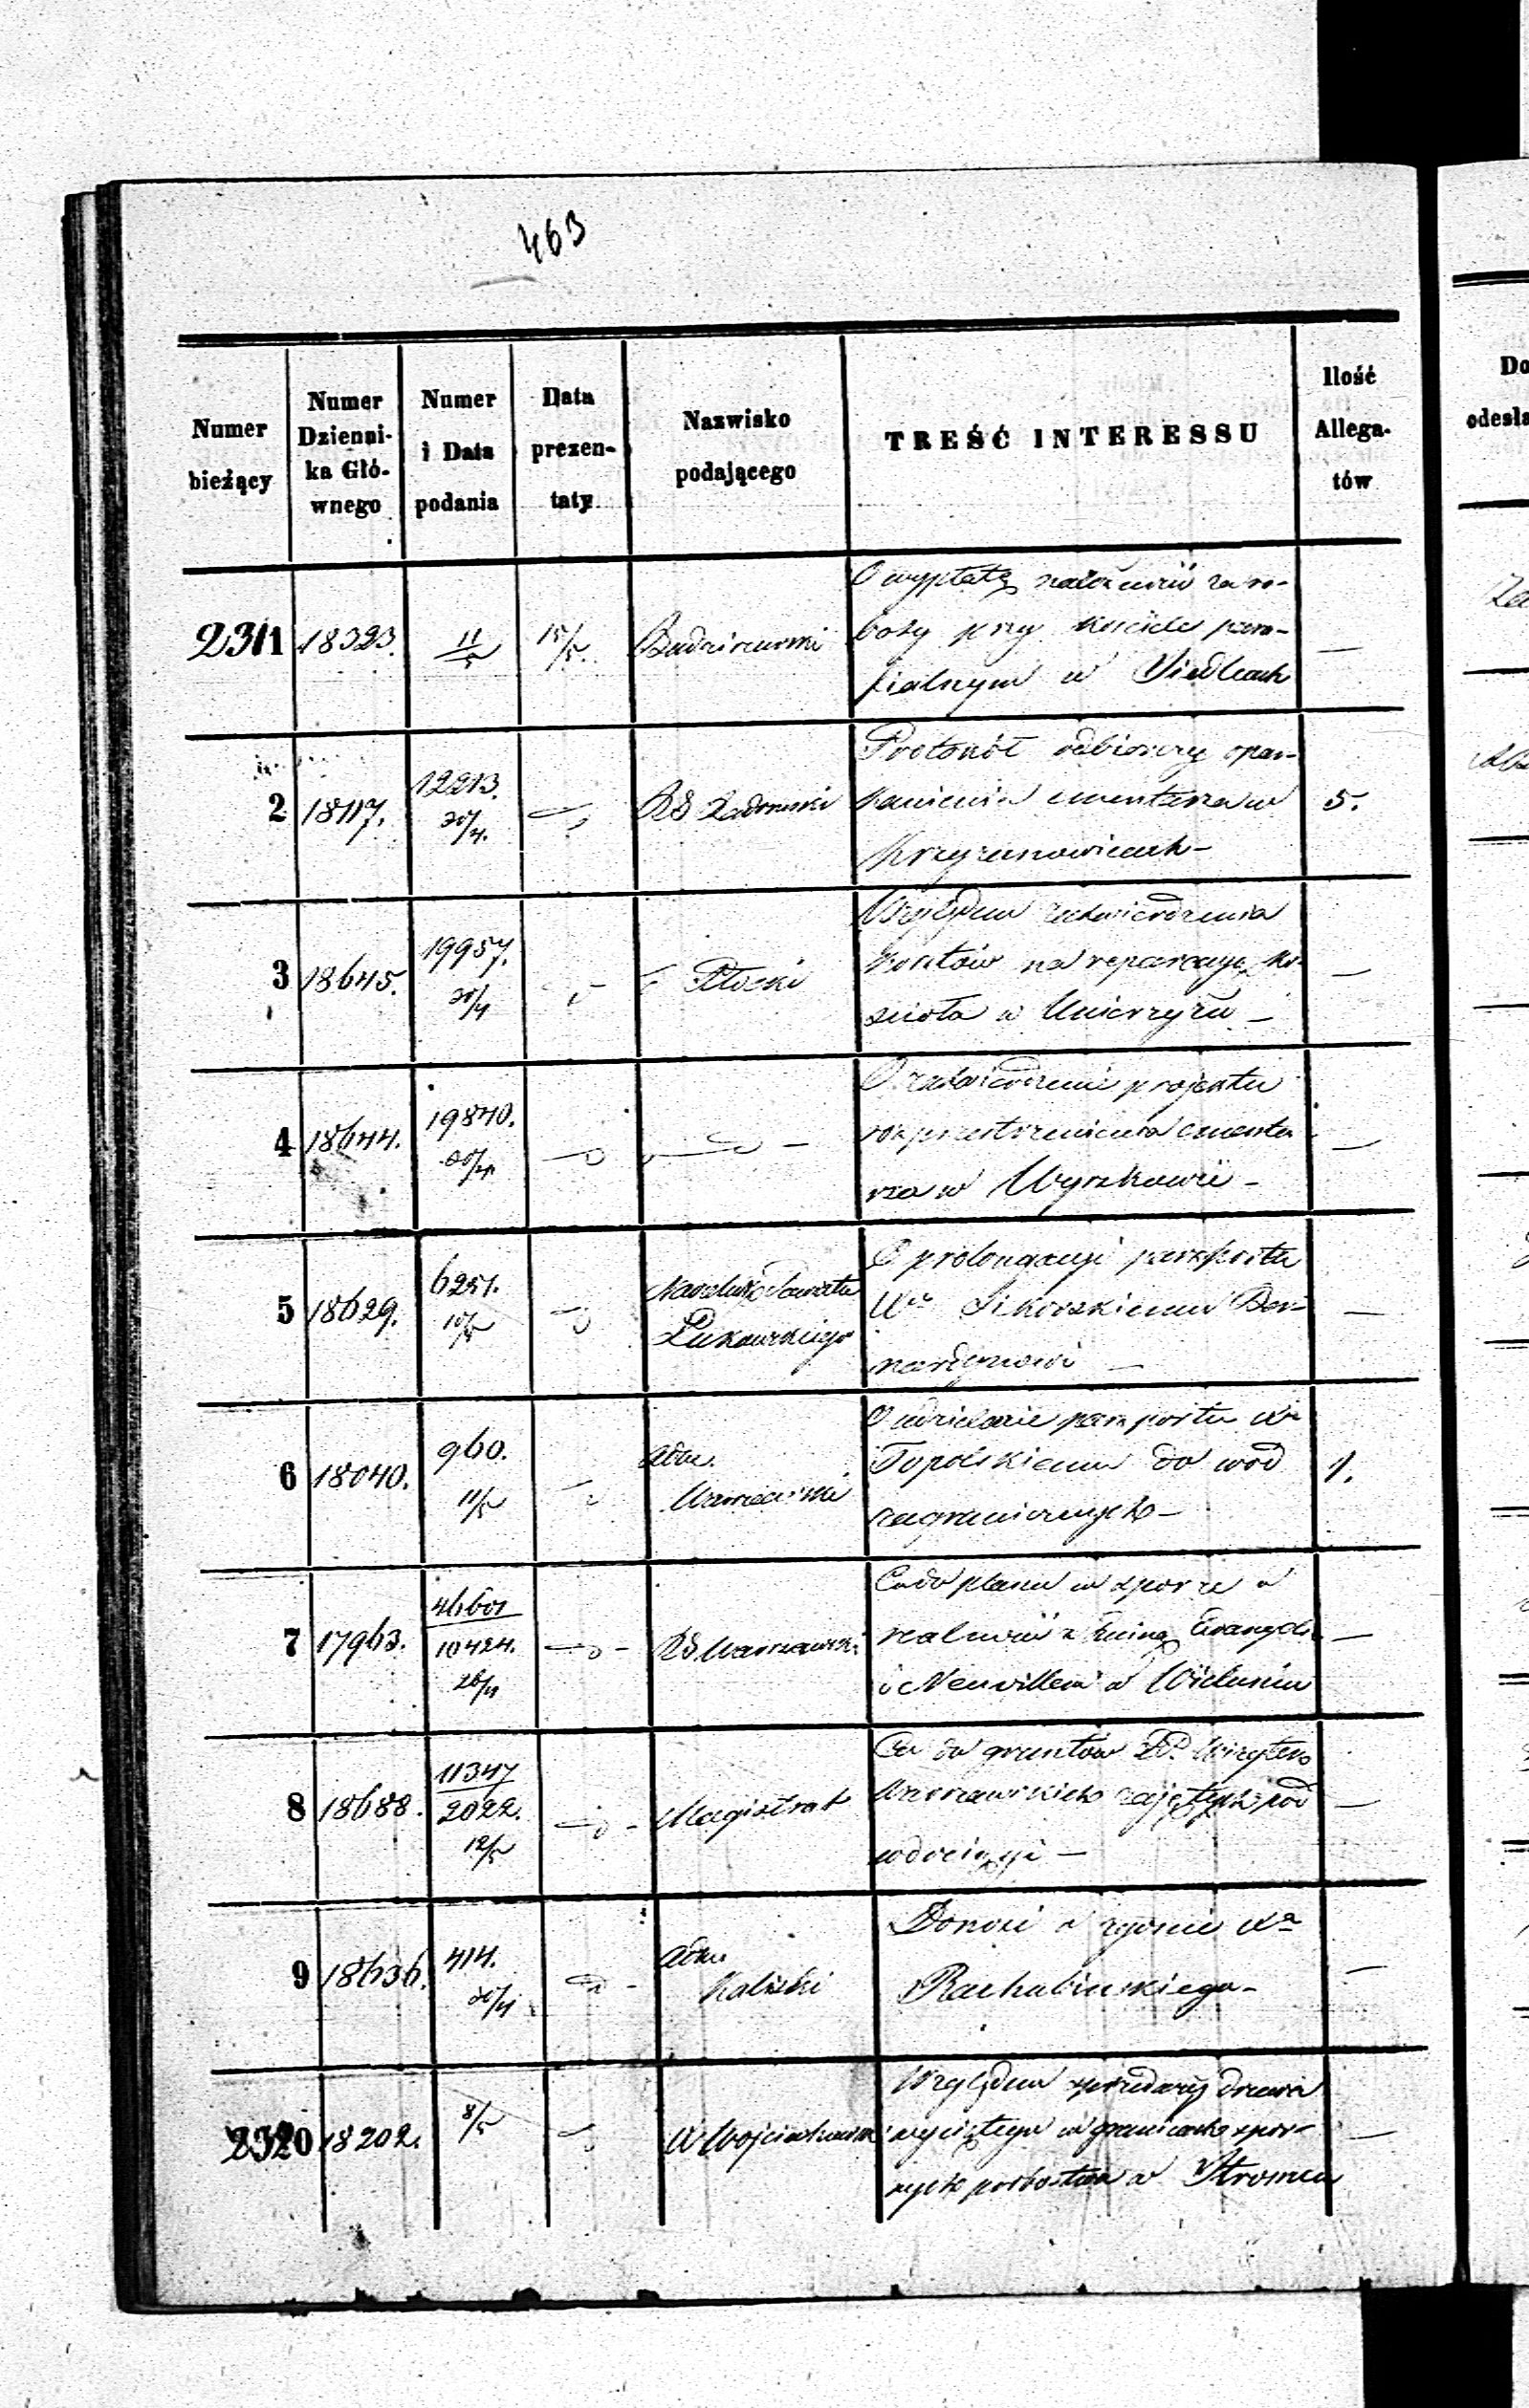 463
Numer bieżący | Numer Dzienni- ka Głó- wnego | Numer i Data podania | Data prezen- taty | Nazwisko podającego | TREŚĆ INTERESSU | Ilość Allega- tów
Do
odesła
2311 18323. 11/5 15/5.
O wypłatę należności za ro-
boty przy kościele para-
fialnym w Siedlcach
—
2 18117. 12213. 20/4. RG Radomski
Protokół odbiorczy opar-
kanienia cmentarza w
Krzyżanowicach —
5.
3 18645. 19957. 20/4 Płocki
Względem zatwierdzenia
kosztów na reparacyę ko-
ścioła w Unierzyżu —
—
4 18644. 19840. 20/4.
O zatwierdzenie projektu
rozprzestrzenienia cmenta
rza w Wyszkowie —
—
5 18629. 6251. 10/5 Naczelnik Powiatu
Łukowskiego
O prolongacyi paszportu
Xu Sikorskiemu Ber-
nardynowi —
—
6 18040. 960. 11/5 Adm.
Warszawski
O udzielenie paszportu Xu
Topolskiemu do wód
zagranicznych —
1.
7 17963. 46601 / 10424. 26/4 RG. Warszawski
Co do planu w sporze o
z Gminą Ewangeli
i Neuvillem w Wieluniu
—
8 18688. 11347 / 2022. 12/5 Magistrat
Co do gruntów PP. Wizytek
Warszawskich zajętych pod
wodociągi —
—
9 18636. 414. 20/4 Adm.
Kaliski
Donosi o zgonie Xa
Rachubińskiego —
—
2320 18202. 8/5 X Wojciechowski
Względem sprzedaży drzewa
wyciętego w granicach spor-
nych probostwa w Stromcu
—